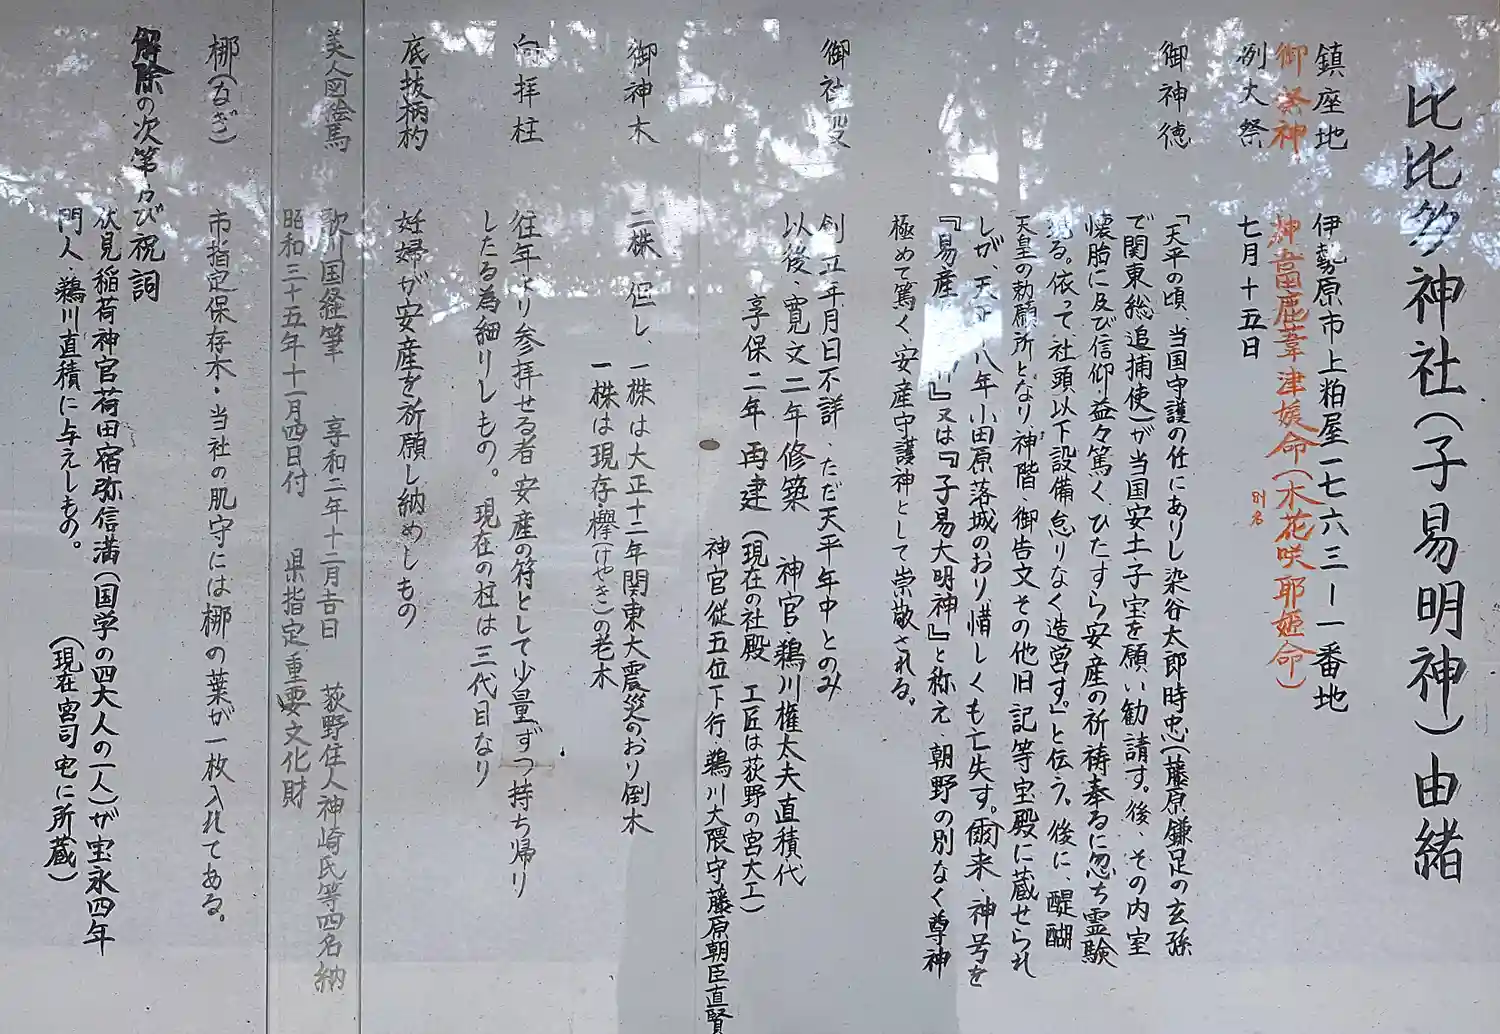 比比多神社（子易明神）由緒
鎮座地 伊勢原市上粕屋一七六三ー一番地
御祭神 神富鹿葦津姫命（木花咲耶姫命）
別名
例大祭 七月十五日
御神徳 「天平の頃、当国守護の任にありし染谷太郎時忠（藤原鎌足の玄孫
で関東総追捕使）が当国安土子宝を願い勧請す。後、その内室
懐胎に及び信仰益々篤く、ひたすら安産の祈祷奉るに忽ち霊験
現る。依って社頭以下設備怠りなく造営す。」と伝う。後に、醍醐
天皇の勅願所となり神階、御告文その他旧記等宝殿に蔵せられ
しが、天正十八年小田原落城のおり惜しくも亡失す。爾来、神号を
『易産 』又は『子易大明神』と称え、朝野の別なく尊神
極めて篤く、安産守護神として崇敬される。
御社殿 創立年月日不詳、ただ天平年中とのみ
以後、寛文二年修築 神官・鵜川権太夫直積代
享保二年再建（現在の社殿 工匠は荻野の宮大工）
神官従五位下行・鵜川大隈守藤原朝臣直賢
御神木 二株、但し、一株は大正十二年関東大震災のおり倒木
一株は現存・欅（けやき）の老木
向拝柱 往年より参拝せる者安産の符として少量ずつ持ち帰り
したる為細りしもの。現在の柱は三代目なり
底抜柄杓 妊婦が安産を祈願し納めしもの
美人図絵馬 歌川国経筆 享和二年十二月吉日 荻野住人神崎氏等四名納
昭和三十五年十一月四日付 県指定重要文化財
梛（なぎ） 市指定保存木・当社の肌守には梛の葉が一枚入れてある。
解除の次第らび祝詞
伏見稲荷神官荷田宿弥信満（国学の四大人の一人）が宝永四年
門人・鵜川直積に与えしもの。（現在宮司宅に所蔵）